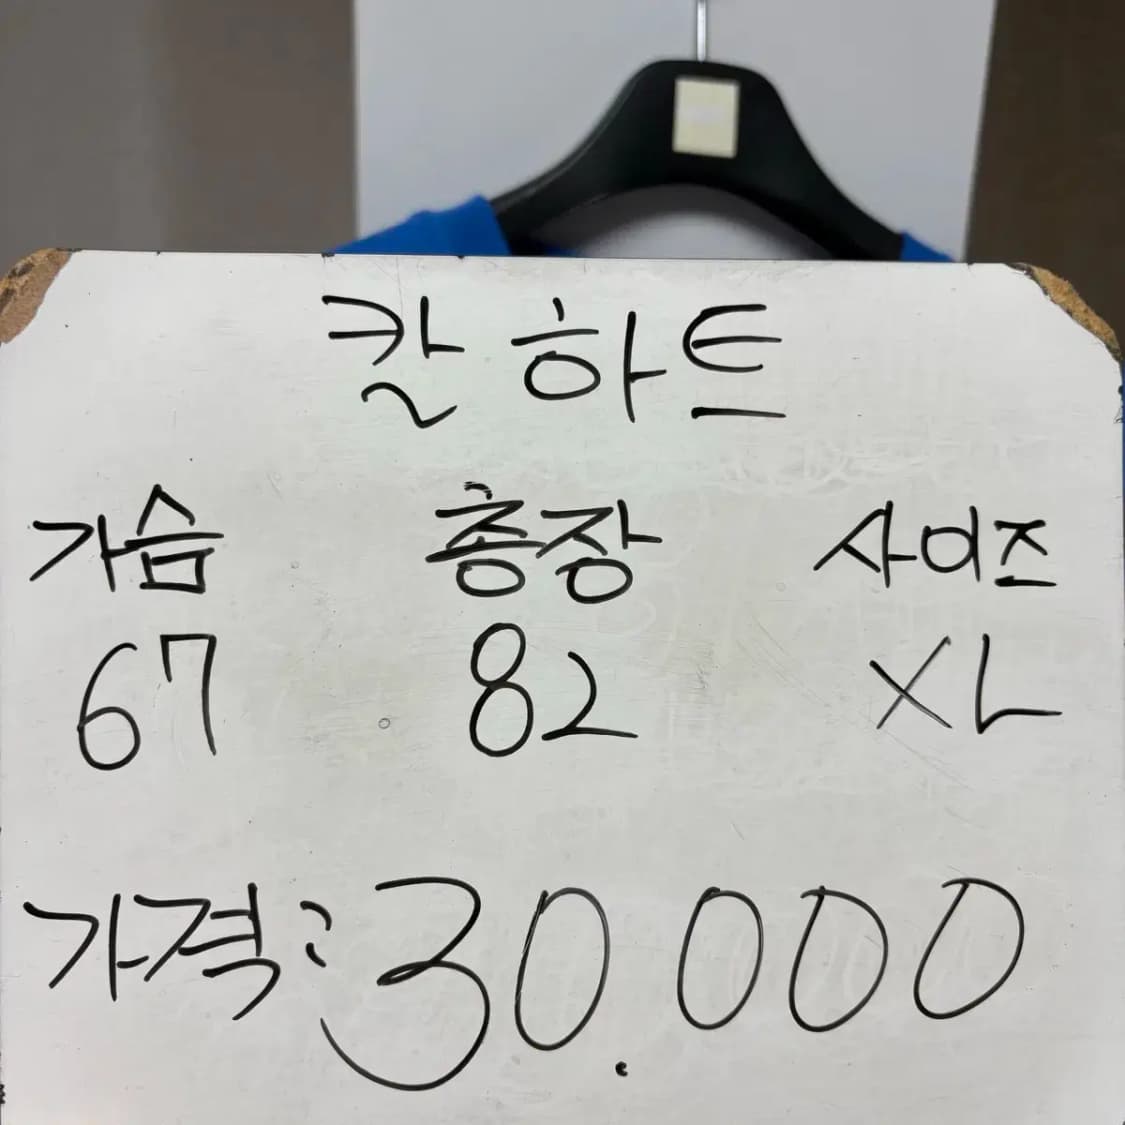 칼하트
가슴 총장 사이즈
67 82 XL
가격:30.000